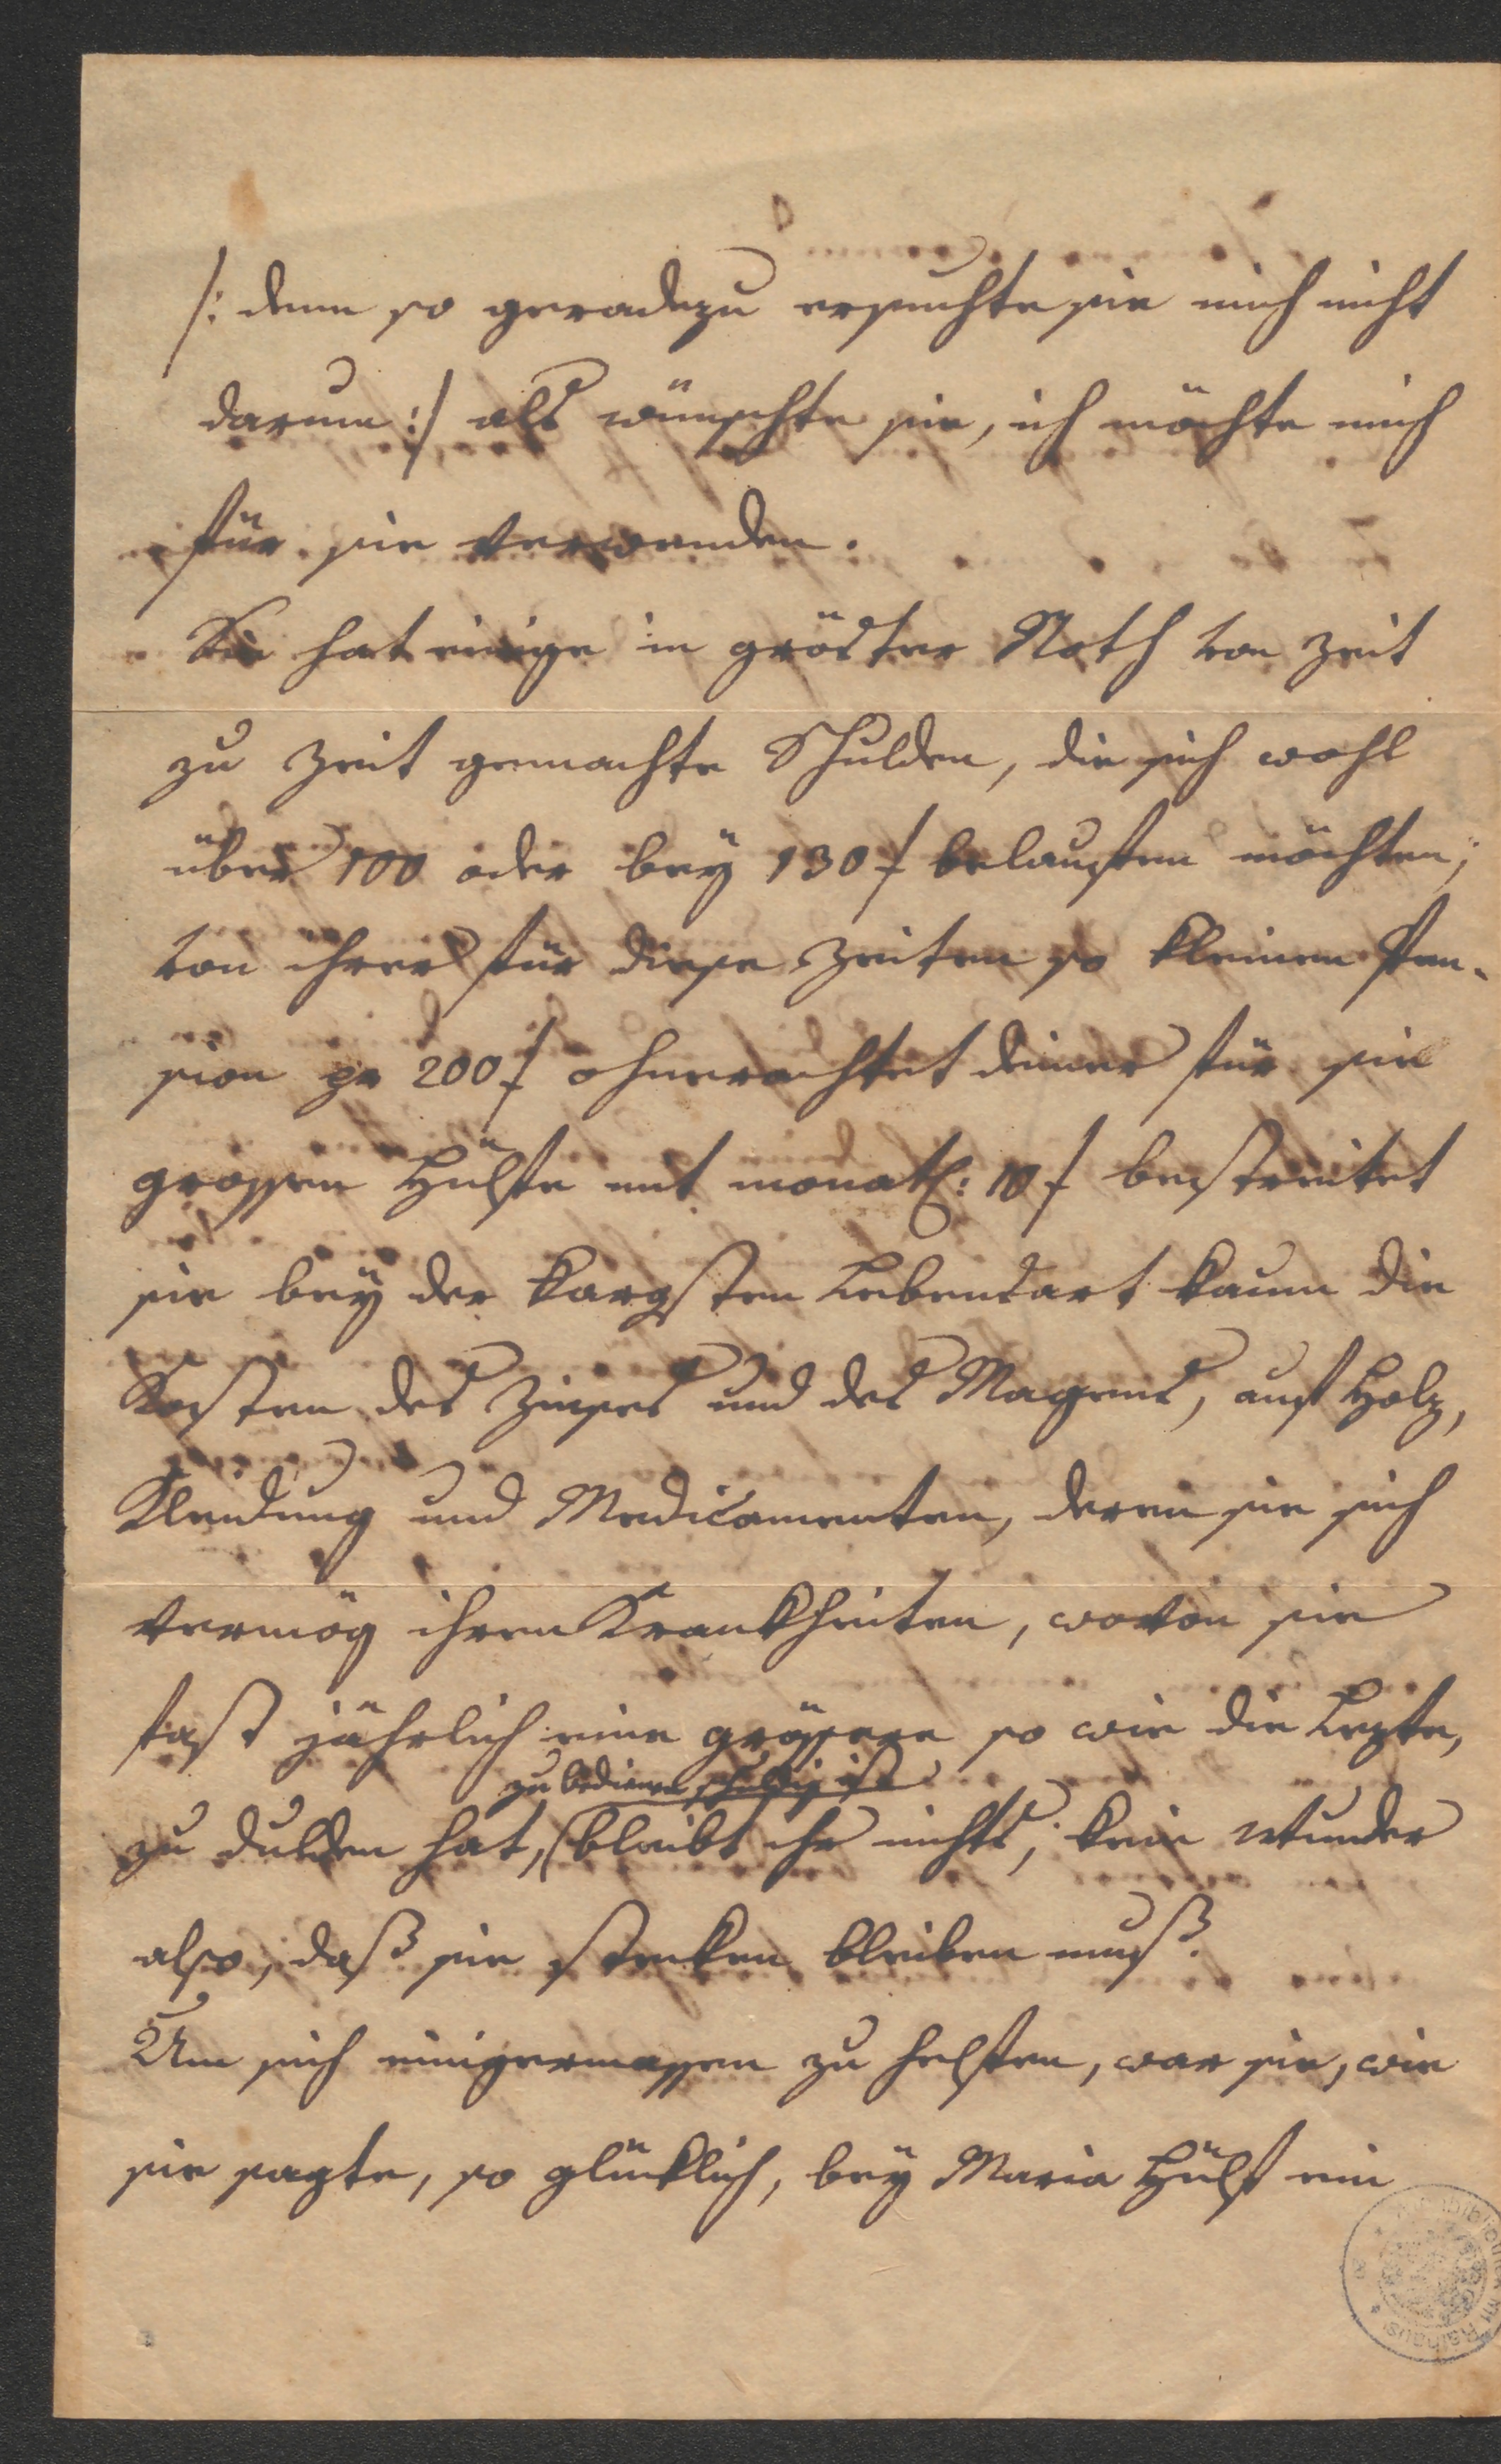 /: denn so geradezu ersuchte sie mich nicht
darum :/ als wünschte sie, ich möchte mich
für sie verwenden.
Sie hat einige in gröster Noth von Zeit
zu Zeit gemachte Schulden, die sich wohl
über 100 oder bey 130 f belauffen möchten;
von ihrer für diese Zeiten so kleinen Pen-
sion pr 200 f ohnerachtet deiner für sie
grossen Hülfe mit monatl: 10 f bestreitet
sie bey der kargsten Lebensart kaum die
Kosten des Zinses und des Magens, auf Holz,
Kleidung und Medicamenten, deren sie sich
vermög ihren Krankheiten, wovon sie
fast jährlich eine grössere so wie die Lezte,
zu bedienen schuldig ist
zu dulden hat, bleibt ihr nichts; kein Wunder
also, daß sie stecken bleiben muß.
Um sich einigermassen zu helffen, war sie, wie
sie sagte, so glücklich, bey Maria Hülf ein